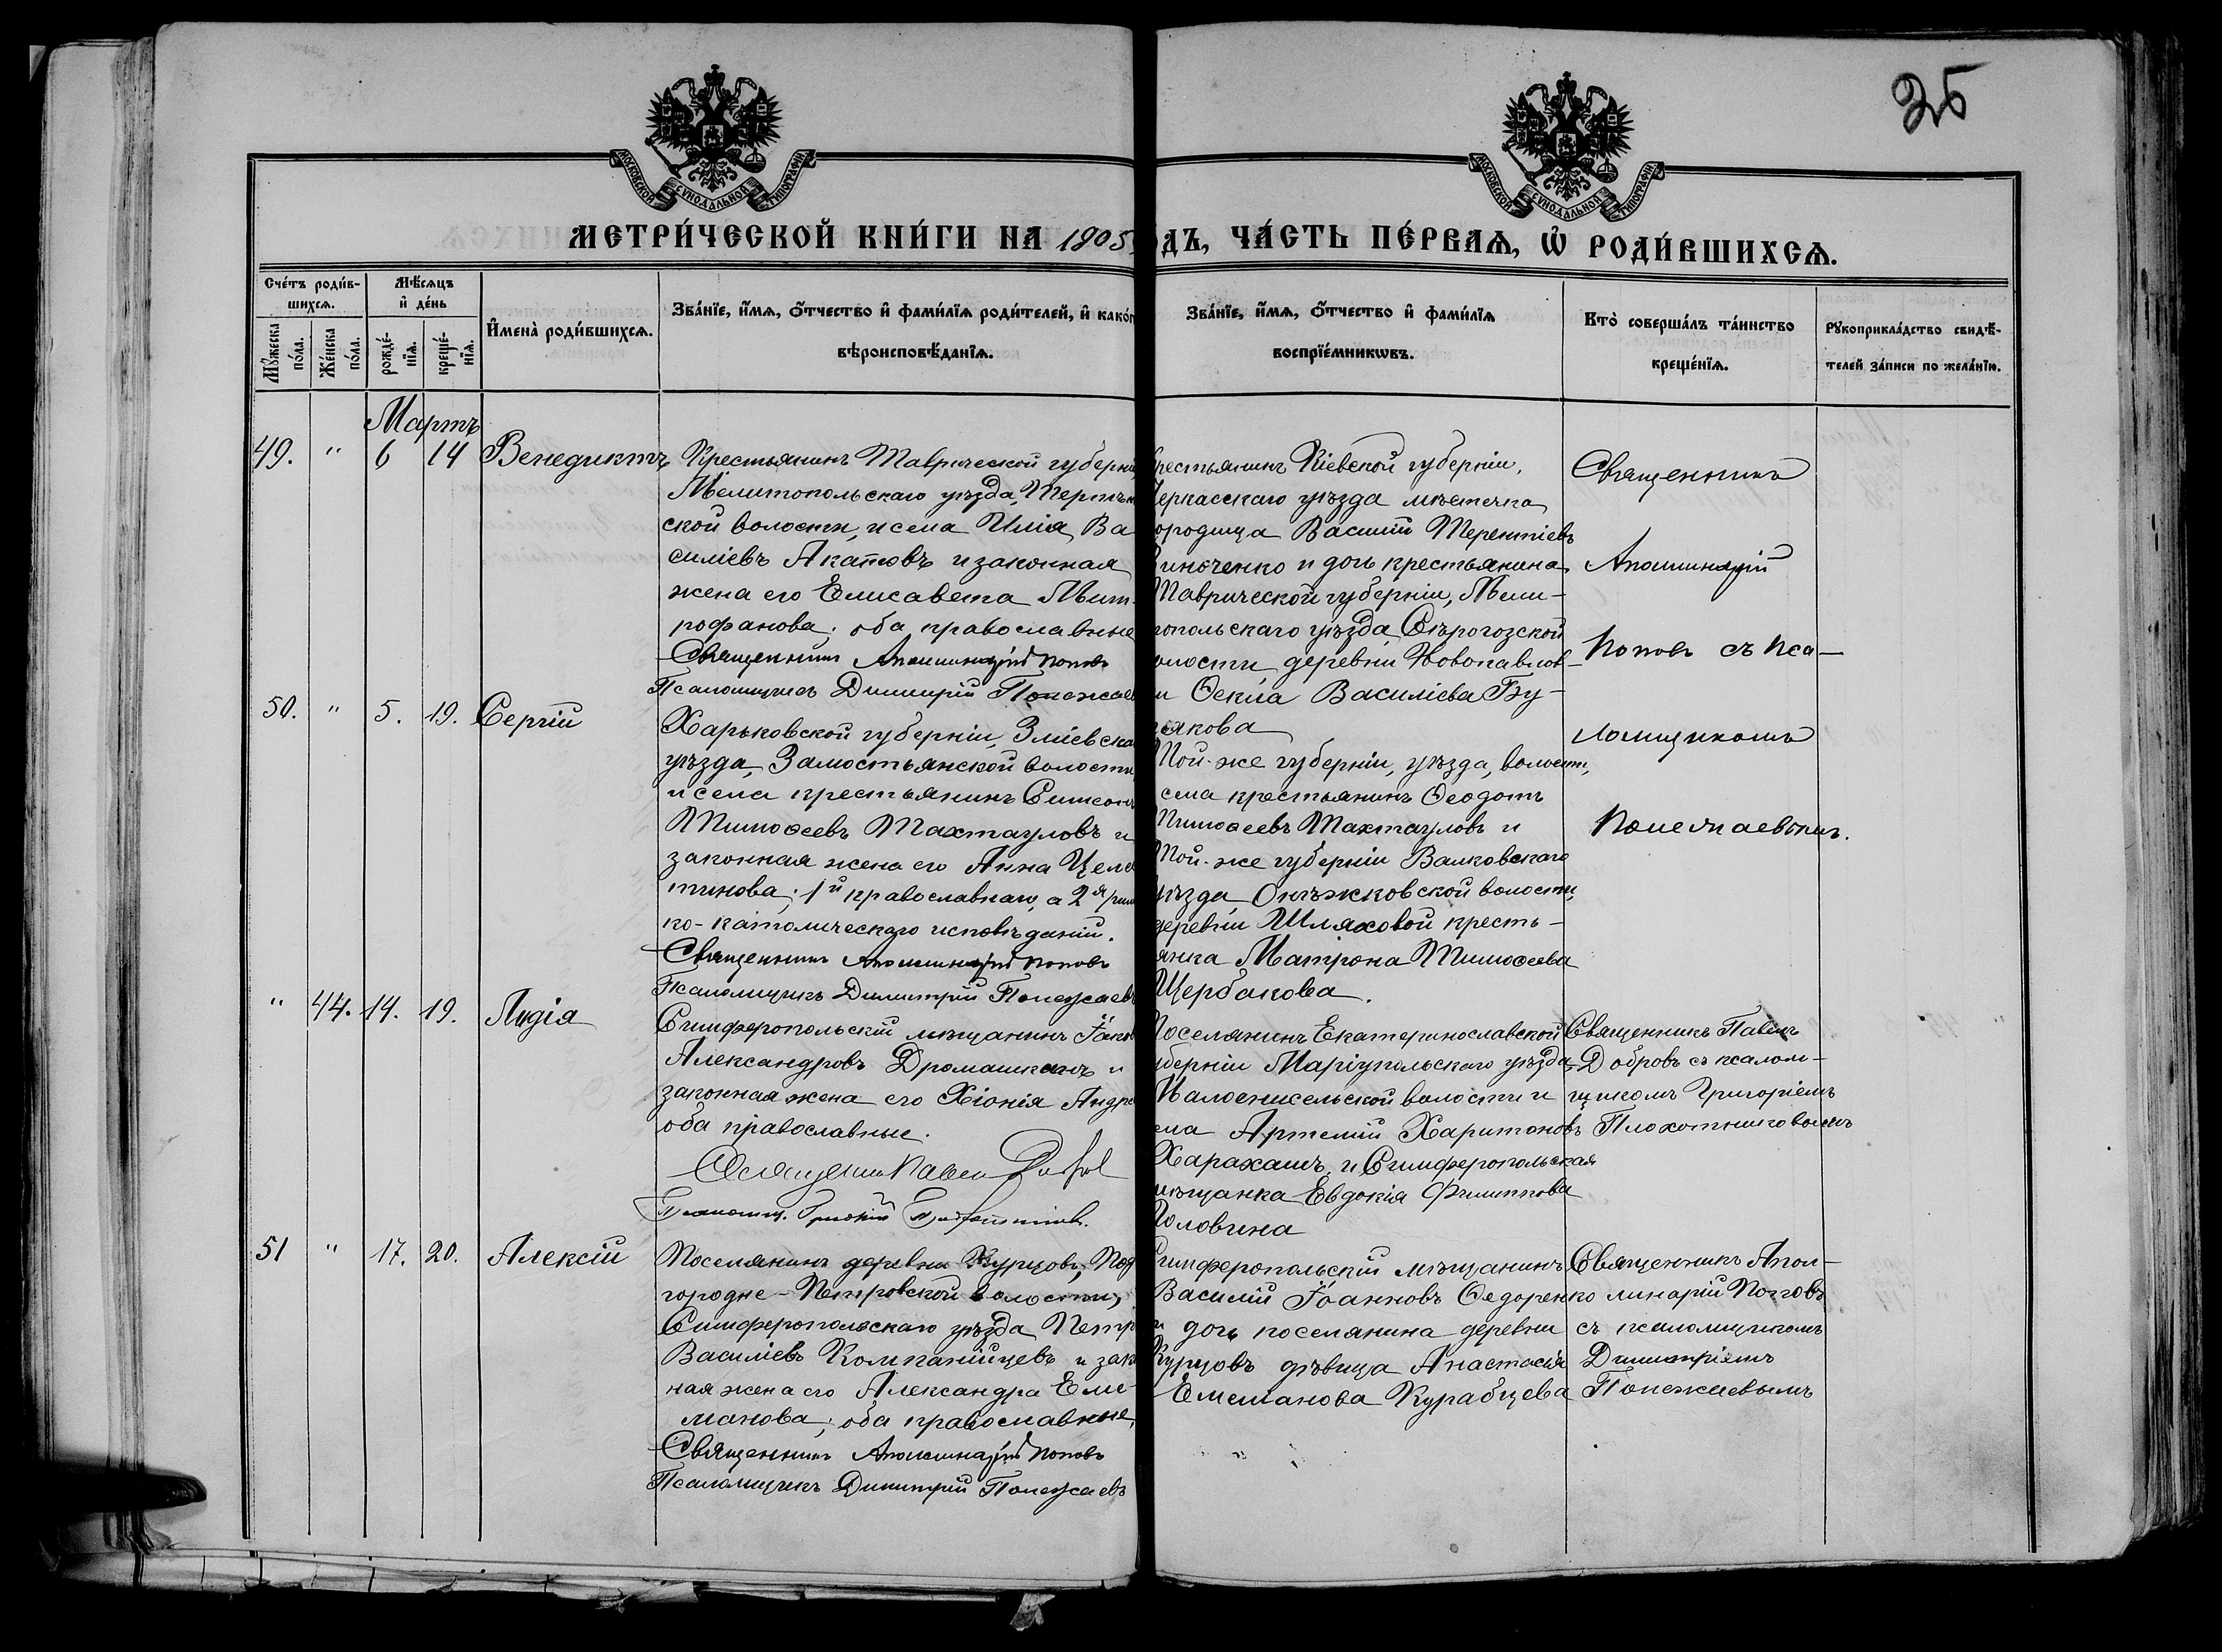 25
МОСКОВСКОЙ СУНОДАЛЬНОЙ ТИПОГРАФІИ
МОСКОВСКОЙ СУНОДАЛЬНОЙ ТИПОГРАФІИ
МЕТРИ́ЧЕСКОЙ КНИ́ГИ НА 1905
ДЪ, ЧА́СТЬ ПЕ́РВАѦ, Ѽ РОДИ́ВШИХСѦ.
Сче́тъ роди́в-
шихсѧ.
Мꙋ́жеска
по́ла.
Же́нска
по́ла.
Мѣ́сѧцъ
и҆ де́нь
рожде́-
нїѧ.
креще́-
нїѧ.
И҆мена̀ роди́вшихсѧ.
Зва́нїе, и҆́мѧ, ѻ҆́тчество и҆ фами́лїѧ роди́телей, и҆ како́г
вѣроисповѣ́данїѧ.
Зва́нїе, и҆́мѧ, ѻ҆́тчество и҆ фами́лїѧ
воспрїе́мникѡвъ.
Кто̀ соверша́лъ та́инство
креще́нїѧ.
Рꙋкоприкла́дство свидѣ́-
телей за́писи по жела́нїю.
Мартъ
49. " 6 14 Венедиктъ
Крестьянинъ Таврической губерніи,
Мелитопольскаго уѣзда,
ской волости, и села Илія Ва
силіевъ Акатовъ и законная
жена его Елисавета Мит-
рофанова; оба православные
Священникъ Аполлинарій Поповъ
Псаломщикъ Димитрій Полежаевъ
рестьянинъ Кіевской губерніи,
Черкасскаго уѣзда мѣстечка
ородища Василій Терентіевъ
и дочь крестьянина
Таврической губерніи, Мели-
топольскаго уѣзда Сѣрогозской
олости деревни Новопавлов-
и Ѳекла Василіева Бу-
якова
Священникъ
Аполлинарій
Поповъ съ Пса-
ломщикомъ
Полежаевымъ.
50. " 5. 19. Сергій
Харьковской губерніи, Зміевска
уѣзда, Замостьянской волости,
и села крестьянинъ Симеонъ
Тимоѳеевъ Тахтауловъ и
законная жена его Анна Целе
тинова; 1й православнаго, а 2я рим
ко-католическаго исповѣданій.
Священникъ Аполлинарій Поповъ
Псаломщикъ Димитрій Полежаевъ
Той-же губерніи, уѣзда, волости,
села крестьянинъ Ѳеодотъ
Тимоѳеевъ Тахтауловъ и
Той-же губерніи Валковскаго
уѣзда, волости,
деревни Шляховой кресть-
янка Матрона Тимоѳеева
Щербакова.
" 44. 14. 19. Лидія
Симферопольскій мѣщанинъ Іаков
Александровъ и
законная жена его Хіонія Андре
оба православные.
Священникъ Павелъ Добр
Псаломщ. Григорій
Поселянинъ Екатеринославской
уберніи Маріупольскаго уѣзда
Малоенисельской волости и
ела Артемій Харитоновъ
Харахашъ, и Симферопольская
мѣщанка Евдокія Филиппова
Головина
Священникъ Павелъ
Добровъ съ псалом-
щикомъ Григоріемъ
Плохотниковымъ
51 " 17. 20. Алексій
Поселянинъ деревни Курцовъ, Под
городне-Петровской волости,
Симферопольскаго уѣзда Петр
Василіевъ Компанійцевъ и закон
ная жена его Александра Еме
лианова; оба православные.
Священникъ Аполлинарій Поповъ
Псаломщикъ Димитрій Полежаевъ
Симферопольскій мѣщанинъ
Василій Іоанновъ Ѳедоренко
и дочь поселянина деревни
Курцовъ дѣвица Анастасія
Емелианова Курабцева
Священникъ Апол-
линарій Поповъ
съ псаломщикомъ
Димитріемъ
Полежаевымъ